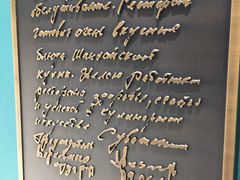 обслуживание. Ресторан
готовит очень вкусные
блюда Шанхайской
кухни. Желаю работникам
ресторана здоровья, счастья
и успехов в кулинарном
искусстве.
С уважением